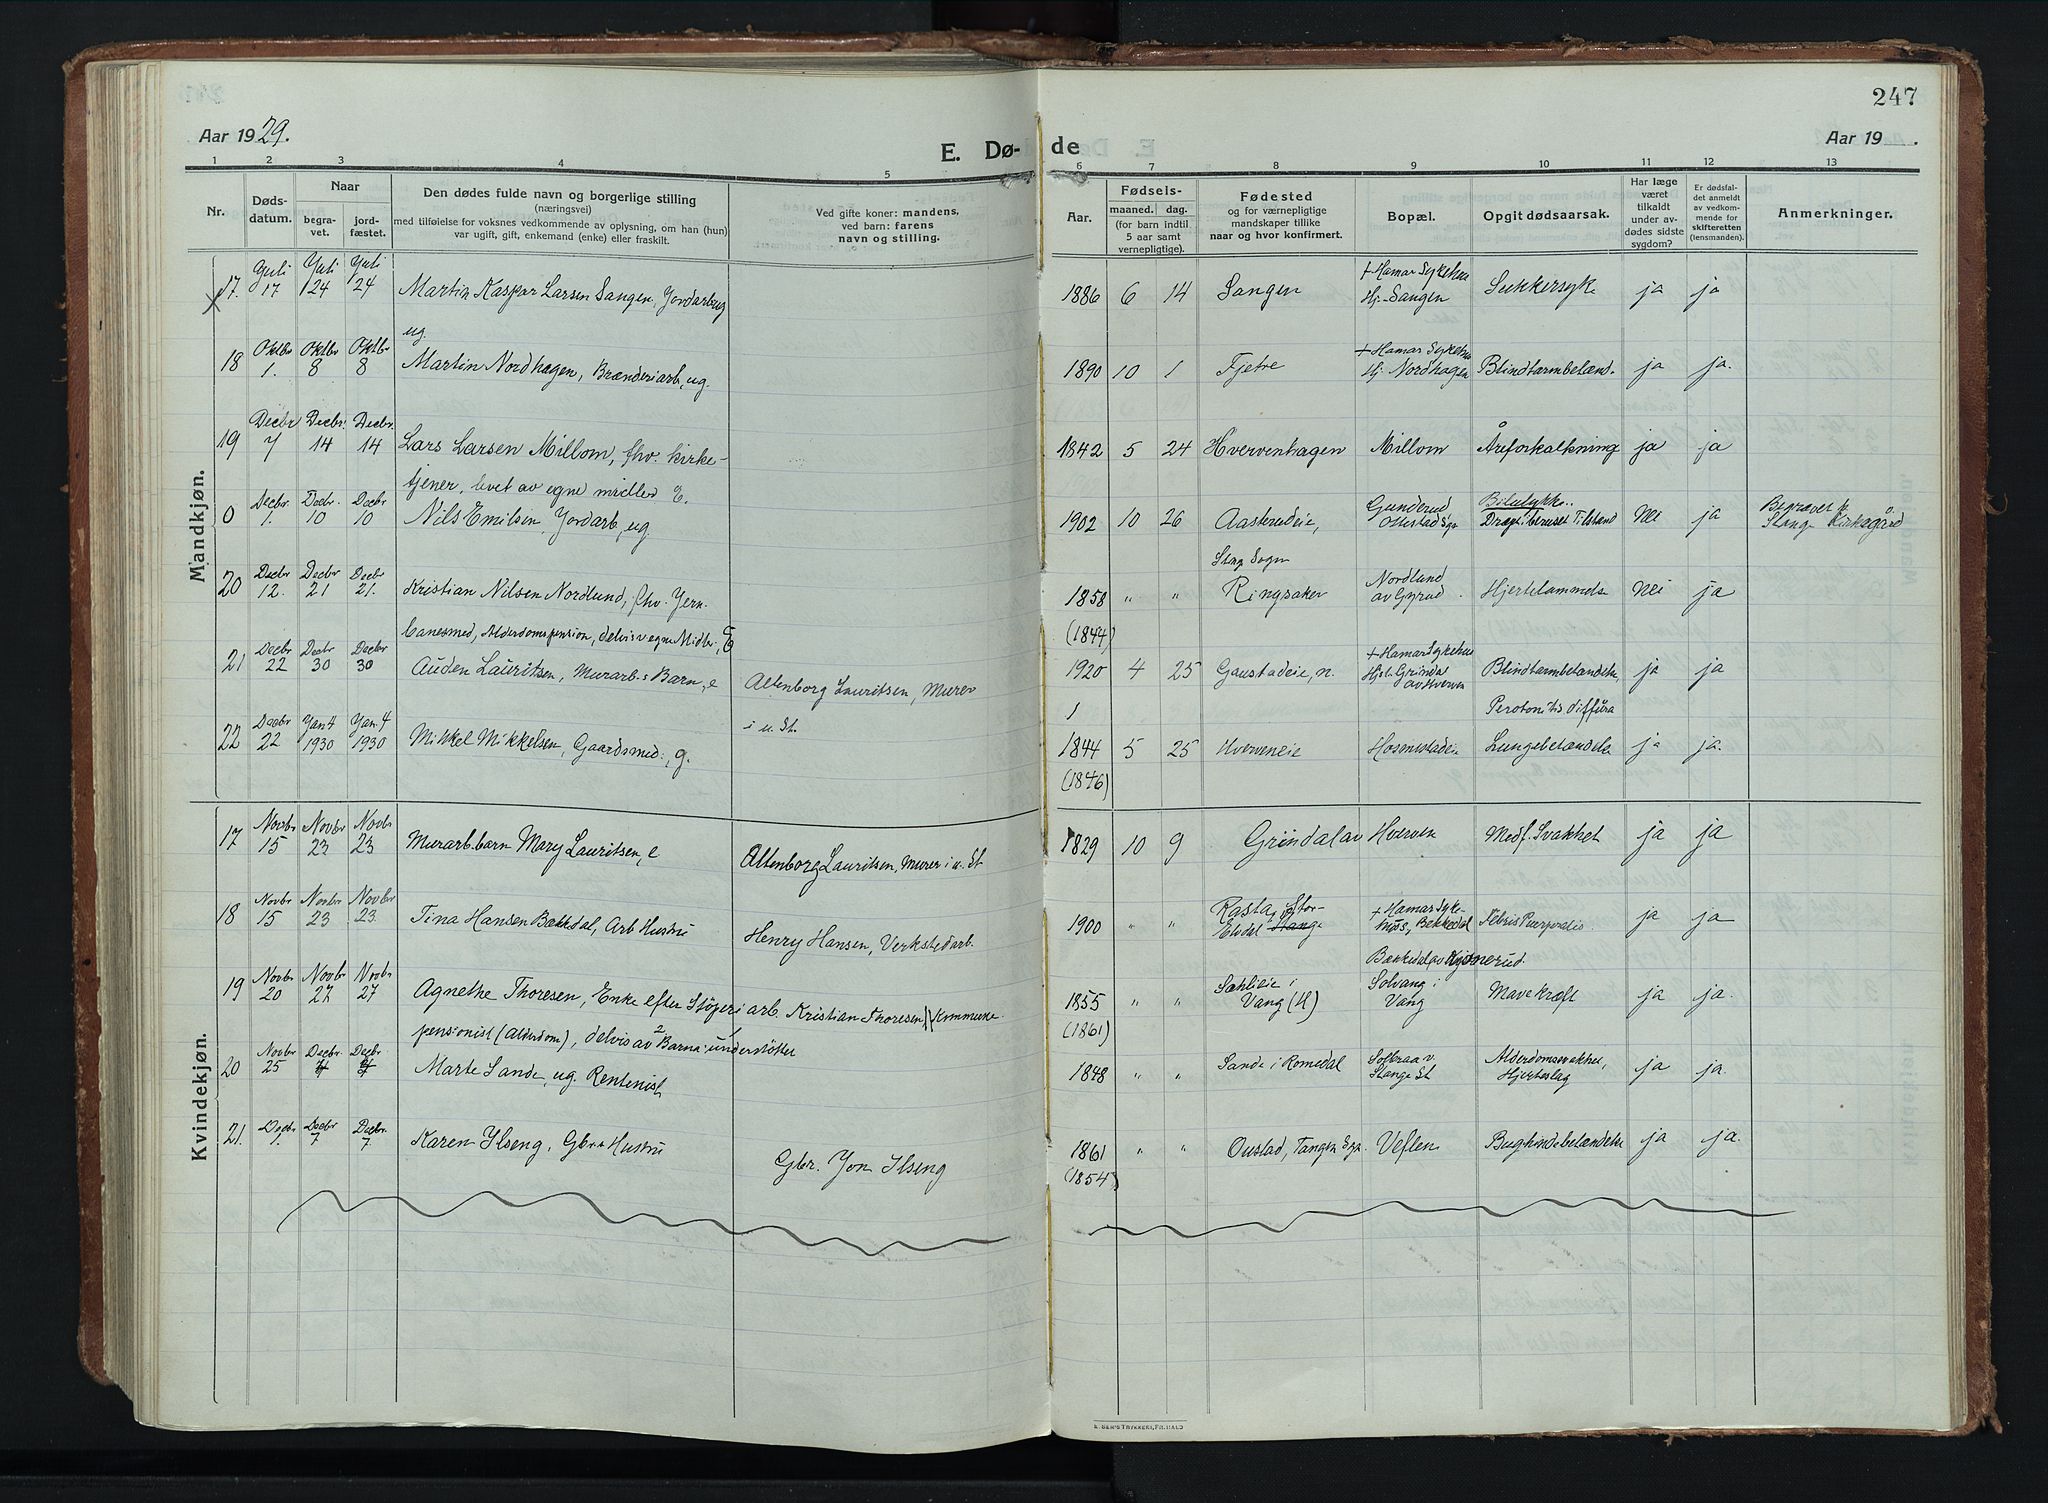 247
Aar 1929.
E. Dø- de
Aar 19 .
1 2 3 4 5 6 7 8 9 10 11 12 13
Nr.
Døds-
datum.
Naar
begra-
vet.
jord-
fæstet.
Den dødes fulde navn og borgerlige stilling
(næringsvei)
med tilføielse for voksnes vedkommende av oplysning, om han (hun)
var ugift, gift, enkemand (enke) eller fraskilt.
Ved gifte koner: mandens,
ved barn: farens
navn og stilling.
Aar.
Fødsels-
maaned. dag.
(for barn indtil
5 aar samt
vernepligtige).
Fødested
og for værnepligtige
mandskaper tillike
naar og hvor konfirmert.
Bopæl.
Opgit dødsaarsak.
Har læge
været
tilkaldt
under av-
dødes sidste
sygdom?
Er dødsfal-
det anmeldt
av vedkom-
mende for
skifteretten
(lensmanden).
Anmerkninger.
Mandkjøn.
Juli Juli Juli + Hamar Sykehus
17. 17 24 24 Martin Kaspar Larsen Sangen, Jordarbug 1886 6 14 Sangen Hj. Sangen Sukkersyke ja ja
ug.
Oktbr Oktbr Oktbr + Hamar Sykehus
18 1. 8 8 Martin Nordhagen, Brænderiarb, ug. 1890 10 1 Fjetre Hj. Nordhagen Blindtarmbetænd. ja ja.
Decbr Decbr. Decbr.
19 7 14 14 Lars Larsen Millom, fhv. kirke- 1842 5 24 Hvervenhagen Millom Åreforkalkning ja ja
tjener, levet av egne midler E.
Decbr. Decbr. Decbr Gunderud Bilulykke..
0 1. 10 10 Nils Emilsen, Jordarb, ug. 1902 10 26 Aasterudeie, Ottestad Sgn Dræpt i beruset Tilstand Nei ja Begravet på Stange Kirkegård
Stang Sogn
Decbr Decbr Decbr Nordlund
20 12. 21 21. Kristian Nilsen Nordlund, fhv. Jern. 1858 " " Ringsaker av Gyrud Hjertelammelse Nei ja
banesmed, Alderdomspension, delvis v egne Midler, E (1844)
Decbr Decbr Decbr + Hamar Sykehus
21 22 30 30 Auden Lauritsen, Murarb.s Barn, e Altenborg Lauritsen, Murer 1920 4 25 Gaustadeie, n. Hjst. Grindal av Hverven Blindtarmbetændelse, ja ja
i u. St. 1 Perotonitis diffusa
Decbr Jan 4 Jan. 4
22 22 1930 1930 Mikkel Mikkelsen, Gaardsmed:, g. 1844 5 25 Hverveneie Hosenstadeie Lungebetændelse ja ja.
(1846)
Kvindekjøn.
Novbr Novbr Novbr
17 15 23 23 Murarb.barn Mary Lauritsen, e Altenborg Lauritsen, Murer i u. St 1829 10 9 Grindal av Hverven Medf. Svakhet ja ja
Novbr Novbr Novbr
18 15 23 23. Tina Hansen Bækkedal, Arb Hustru Henry Hansen, Verkstedarb. 1900 " " Rasta, i Stor- Elvdal Stange + Hamar Syke- hus, Bekkedal Febris Puerperalis. ja ja
Bækkedal av Kjonerud.
Novbr Novbr Novbr
19 20 27 27 Agnethe Thoresen, Enke efter Støperiarb. Kristian Thoresen Kommune- 1855 " " Sæhlieie i Vang (H) Solvang i Vang Mavekræft ja ja.
pensionist (Alderdom), delvis av 2 Barna understøttet (1861)
Novbr Decbr. Decbr
20 25 4 4 Marte Sande, ug. Rentenist 1848 " " Sande i Romedal Solbraa v. Stange St Alderdomssvakhet, Hjerteslag ja ja.
Decbr Decbr Decbr.
21. 1. 7 7 Karen Ilseng, Gbr. Hustru Gbr. Jon Ilseng 1861 " " Oustad, Tangen Sgn. Veflen Bughindebetændelse ja ja.
(1854)
E. SEM'S TRYKKERI, FR.HALD